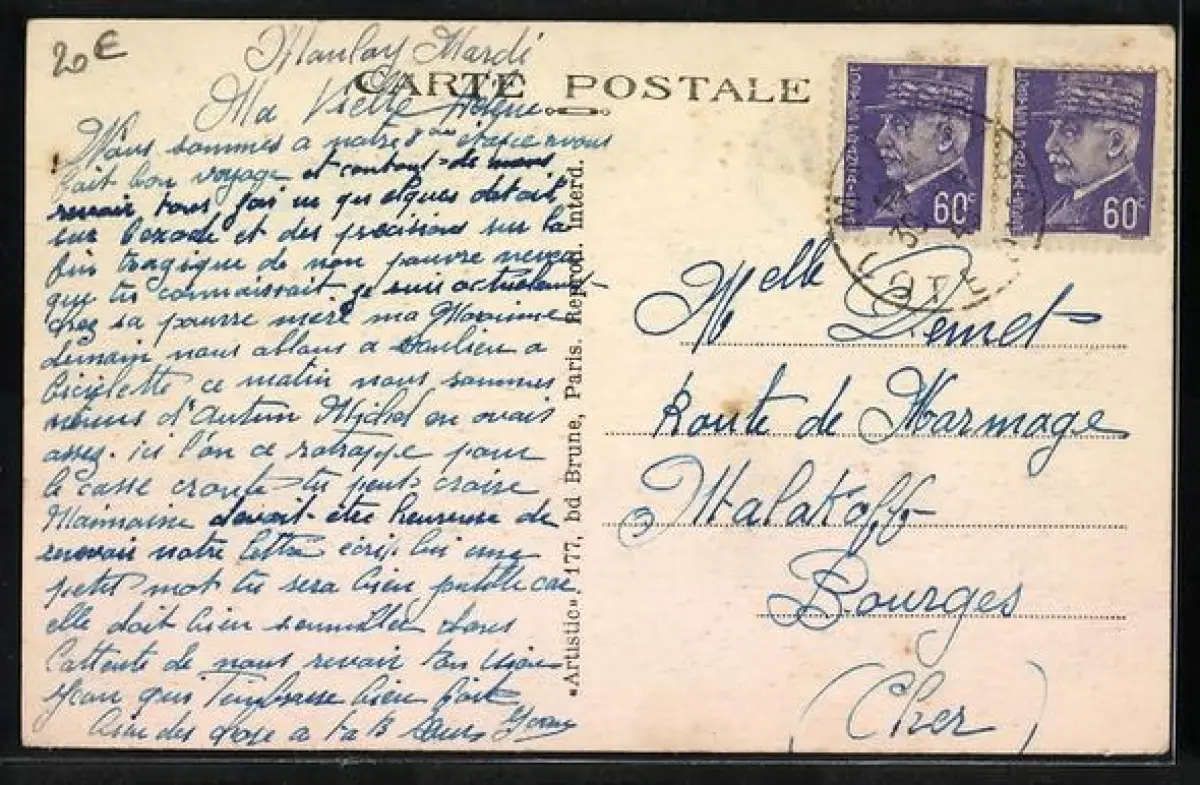 20€
Maulay Mardi
CARTE POSTALE
Ma Vielle
Nous sommes a notre 8me etape avons
fait bon voyage et contant de nous
revoir tous j'ai eu quelques detail
sur l'exode et des precisions sur la
fin tragique de mon pauvre neveu
que tu connaissait je suis actuelement
chez sa pauvre mere ma Marraine
demain nous allons a Saulieu a
biciclette ce matin nous sommes
venus d'Autun Michel en avais
assez. ici l'on ce ratrappe pour
le casse croute tu peut croire
Mainaine devait etre heureuse de
revevoir notre lettre ecrip lui une
petit mot tu sera bien gentille car
elle doit bien s'ennuillée dans
l'attente de nous revoir ton vieux
Jean qui t'embrasse bien fort
bien des chose a ta
«Artistic» 177, bd Brune, Paris. Reprod. interd.
POSTES FRANÇAISES
60c
POSTES FRANÇAISES
60c
Melle Demet
Route de Marmage
Malakoff
Bourges
(Cher)